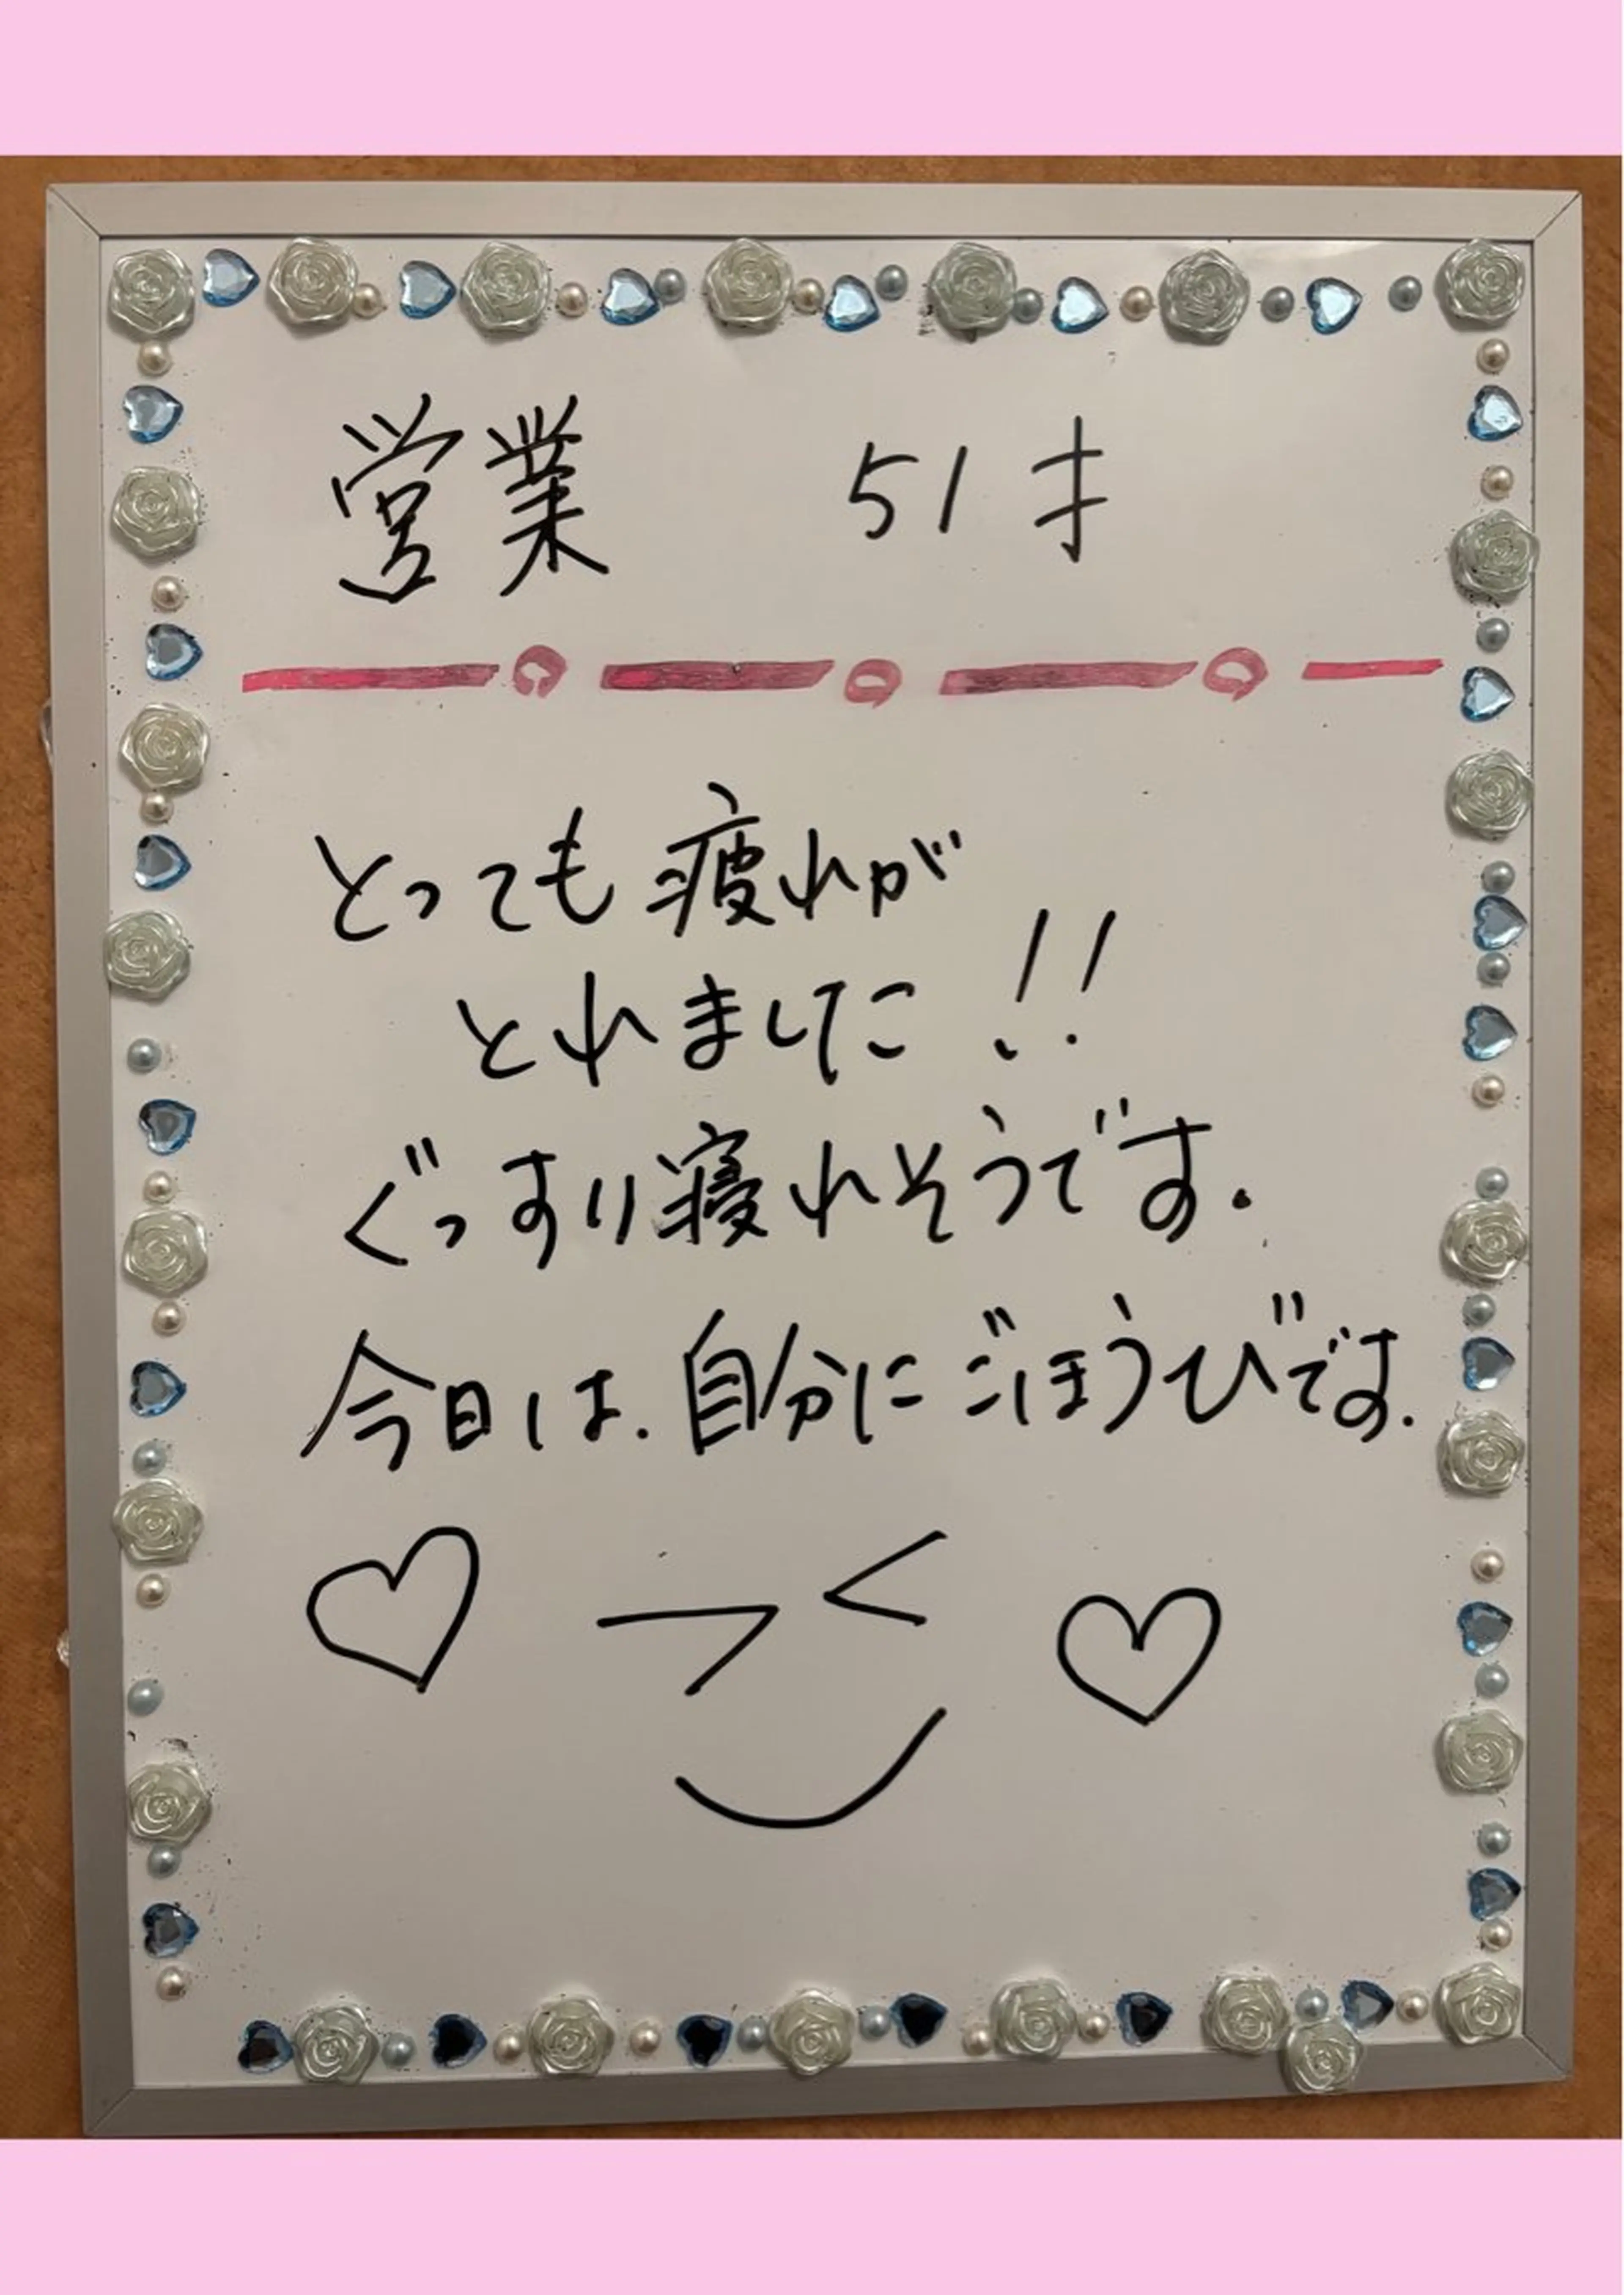 営業　51才
とっても疲れが
とれました!!
ぐっすり寝れそうです.
今日は.自分にごほうびです.